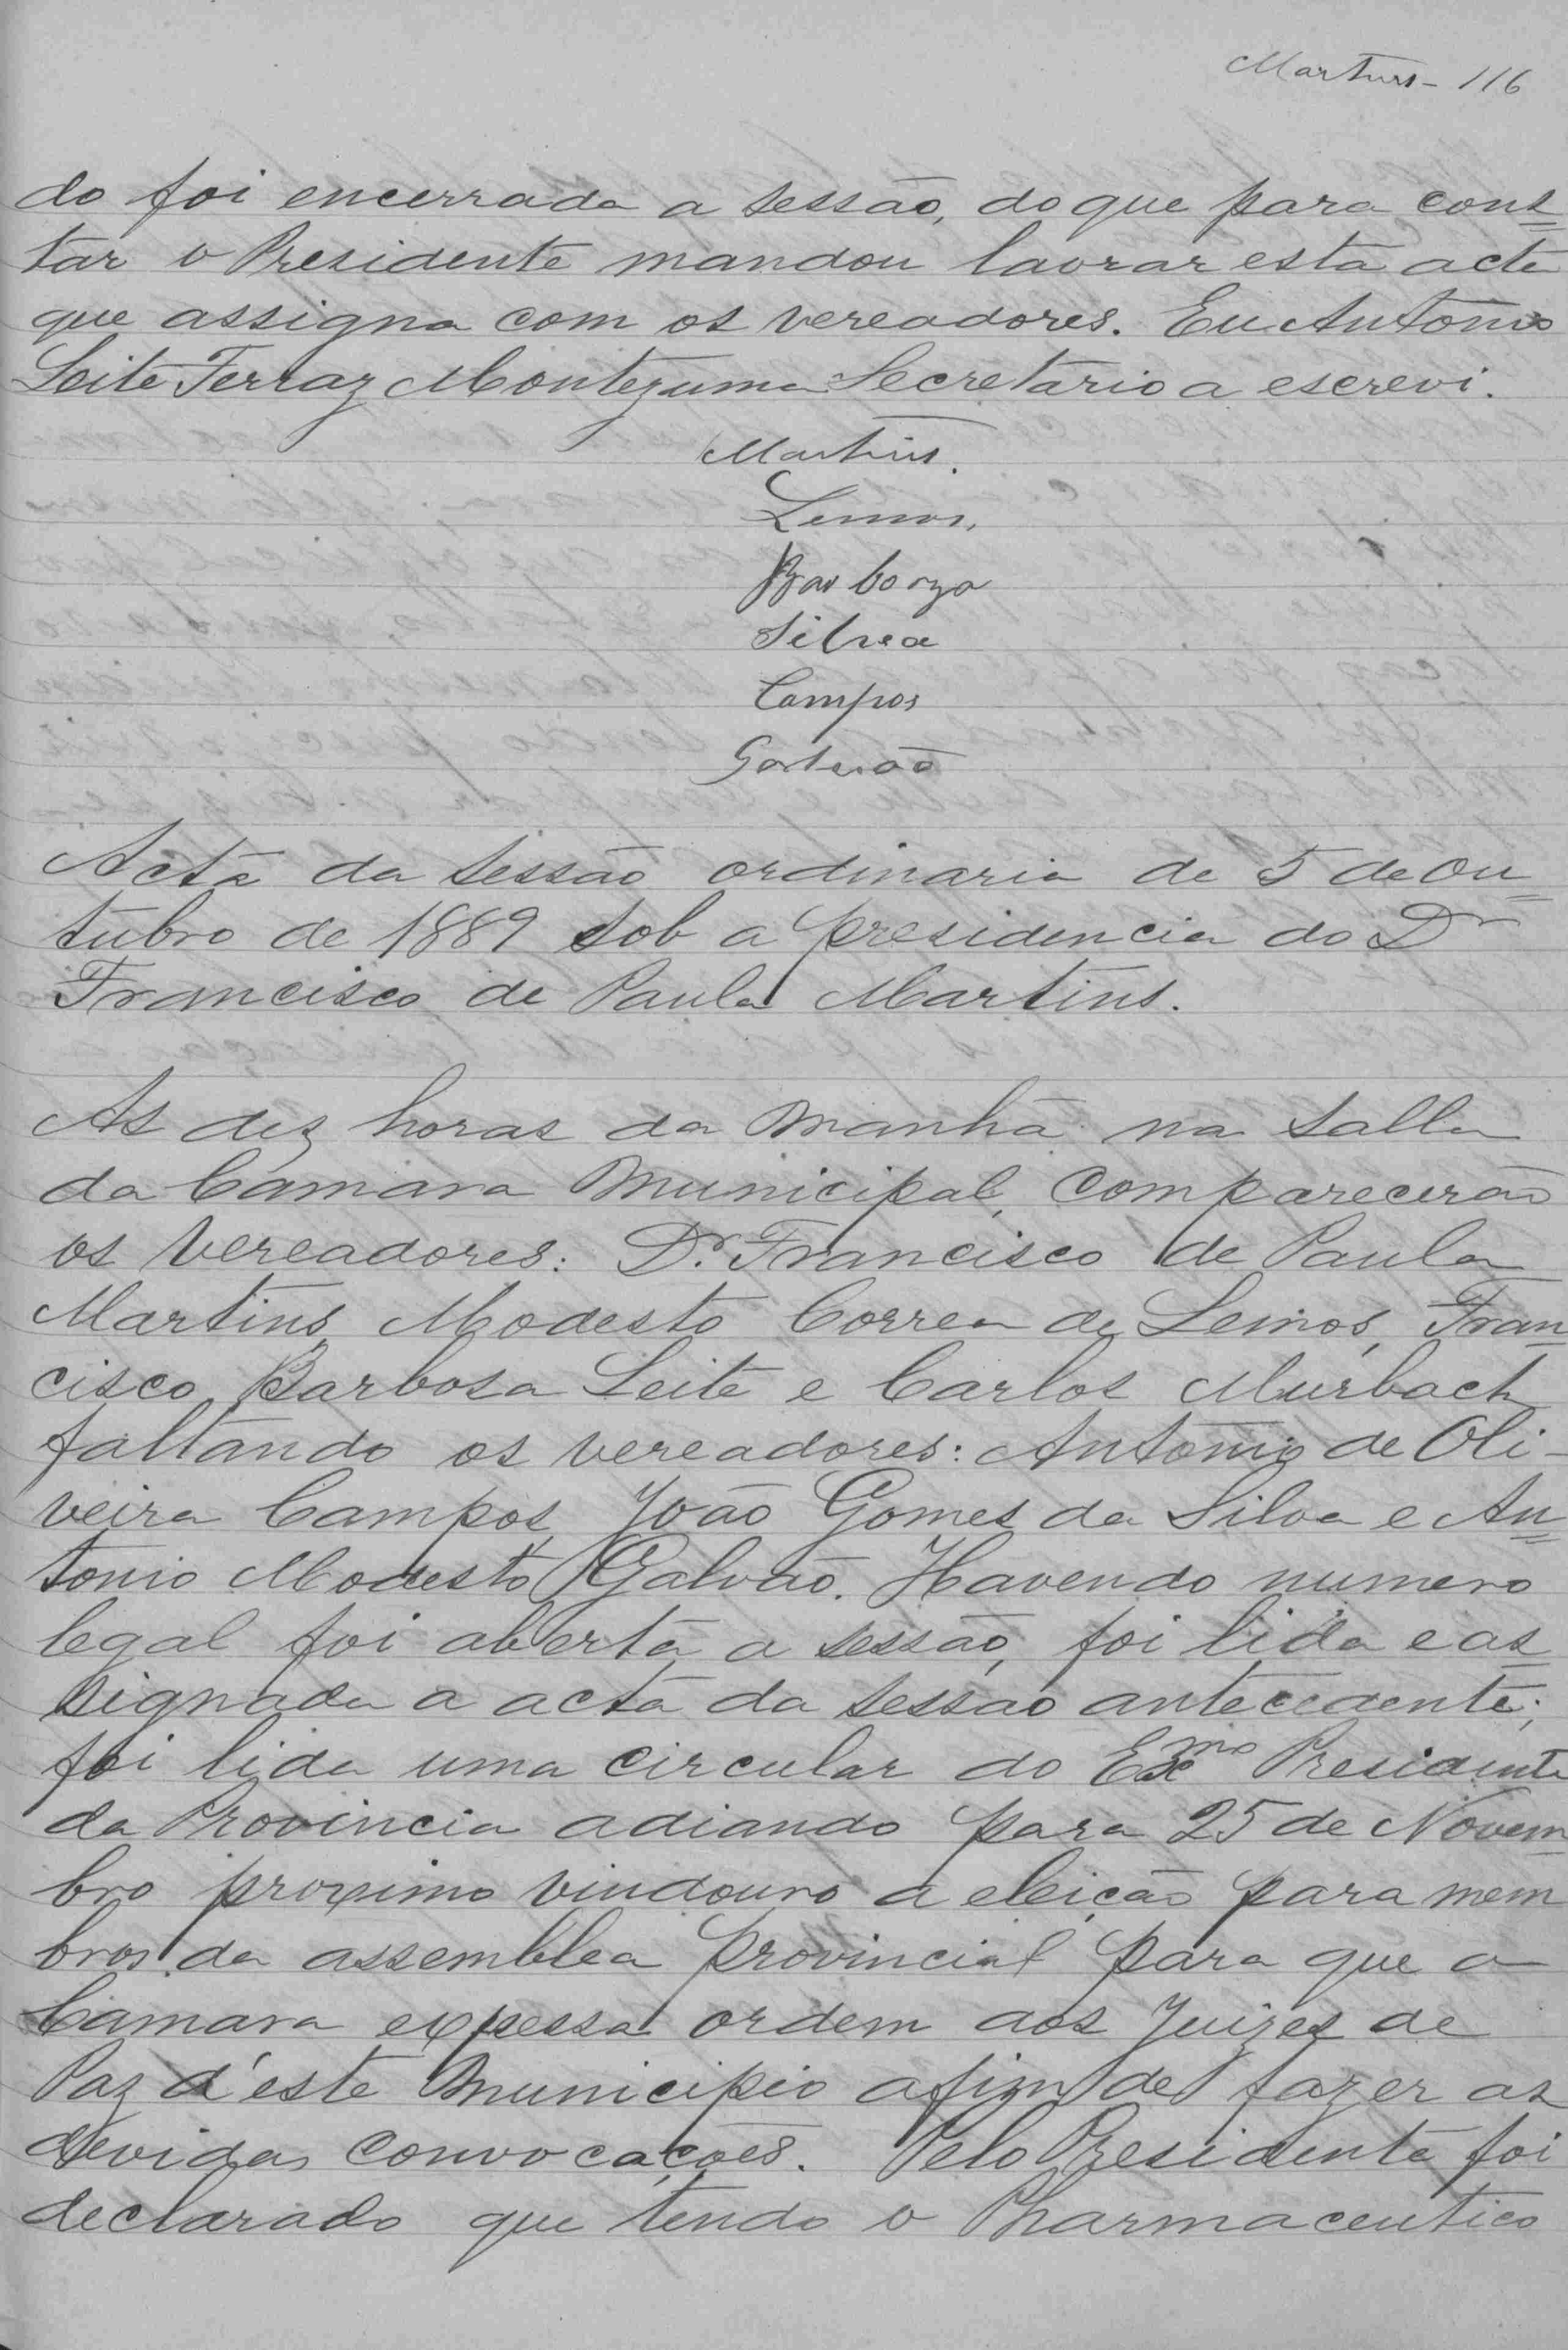 Martins - 116
do foi encerrada a sessão, do que para cons=
tar o Presidente mandou lavrar esta acta
que assigna com os vereadores. Eu Antonio
Leite Ferraz Montezuma Secretario a escrevi.
Martins.
Lemos,
Barboza
Silvea
Campos
Galvão
Acta da sessão ordinaria de 5 de Ou=
tubro de 1889 sob a presidencia do Dr
Francisco de Paula Martins.
As dez horas da manhã na salla
da Camara Municipal, comparecerão
os vereadores: Dr. Francisco de Paula
Martins, Modesto Correa de Lemos, Fran=
cisco Barbosa Leite e Carlos Murbach
faltando os vereadores: Antonio de Oli-
veira Campos, João Gomes da Silva e An=
tonio Modesto Galvão. Havendo numero
legal foi aberta a sessão, foi lida e as
signada a acta da sessão antecedente;
foi lida uma circular do Exmo Presidente
da Provincia adiando para 25 de Novem=
bro proximo vindouro a eleição para mem
bros da assemblea provincial para que a
Camara expessa ordem aos Juizes de
Paz d'este Municipio afim de fazer as
devidas convocações. Pelo Presidente foi
declarado que tendo o Pharmaceutico